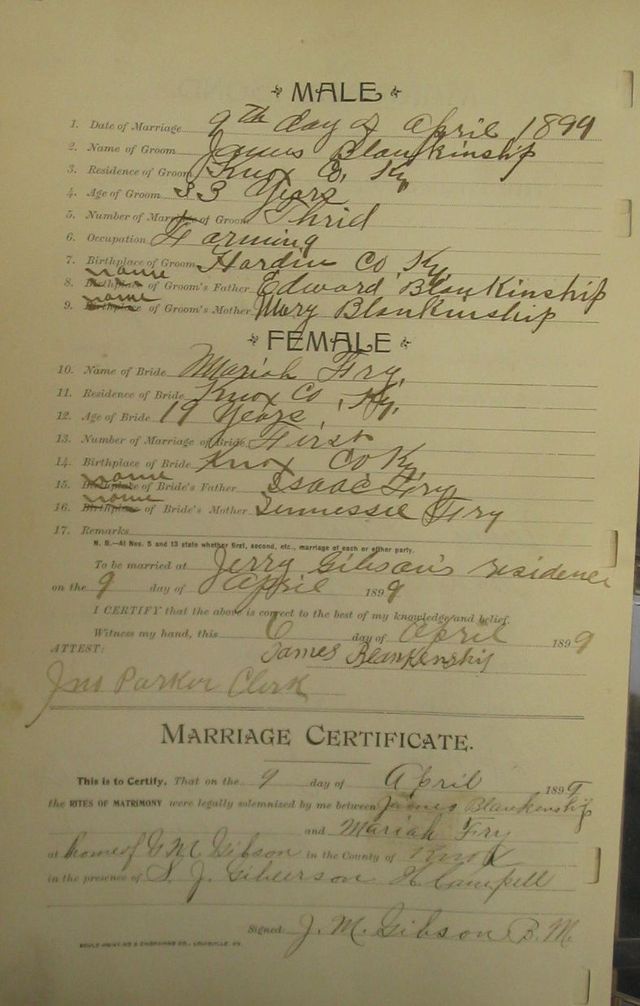 MALE
1. Date of Marriage 9th day of April 1899
2. Name of Groom James Blankinship
3. Residence of Groom Knox Co, Ky
4. Age of Groom 33 Years
5. Number of Marriage of Groom Thrid
6. Occupation Farming
7. Birthplace of Groom Hardin Co, Ky,
name
8. Birthplace of Groom's Father Edward Blankinship
name
9. Birthplace of Groom's Mother Mary Blankinship
FEMALE
10. Name of Bride Mariah Fry,
11. Residence of Bride Knox Co, Ky,
12. Age of Bride 19 Years,
13. Number of Marriage of Bride First
14. Birthplace of Bride Knox Co Ky,
name
15. Birthplace of Bride's Father Isaac Fry
name
16. Birthplace of Bride's Mother Tennessie Fry
17. Remarks
N. B.—At Nos. 5 and 13 state whether first, second, etc., marriage of each or either party.
To be married at Jerry Gibson's residence
on the 9 day of April 1899
I CERTIFY that the above is correct to the best of my knowledge and belief.
Witness my hand, this 6 day of April 1899
ATTEST: James Blankenship
Jno Parker Clerk
MARRIAGE CERTIFICATE.
This is to Certify, That on the 9 day of April 1899
the RITES OF MATRIMONY were legally solemnized by me between James Blankenship
and Mariah Fry
at home of G M Gibson in the County of Knox
in the presence of S. J. H Campell
Signed J. M. Gibson B. M.
PRINTING & ENGRAVING CO., LOUISVILLE, KY.